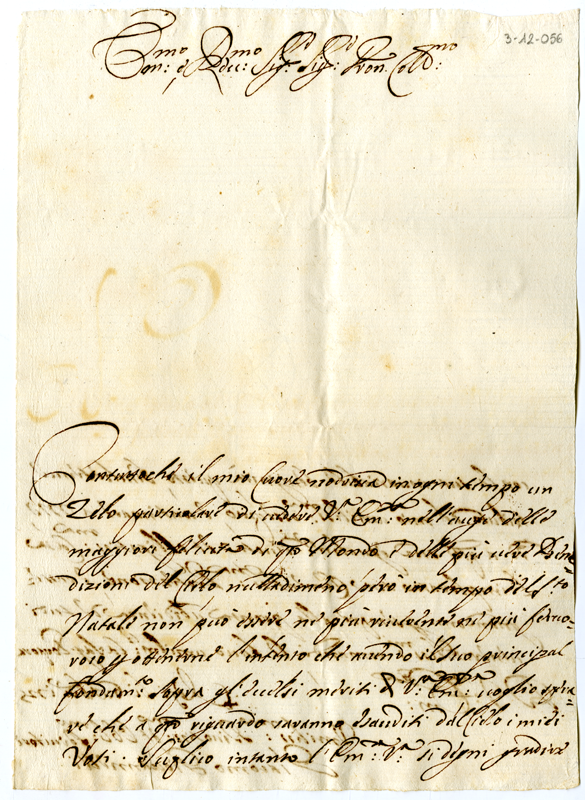 3-12-056
Em:mo e Rdm:mo Sig:r Sig:r Pron: Coll:mo
Contutto che il mio Cuore nodrisca in ogni tempo un
Zelo particolare di vedere V:a Em:za nell'auge delle
maggiori felicità di q:to Mondo e delle più vere Bene-
dizioni del Cielo nulladimeno però in tempo del S:to
Natale non può essere ne più riverente ne più fervo-
roso p ottenerne l'intento che avendo il suo principal
fondam:to sopra gl'eccelsi meriti di V:a Em:za voglio spera-
re che a q:to riguardo saranno esauditi dal Cielo i miei
Voti: Suplico intanto l'Em:za V:a si degni gradire